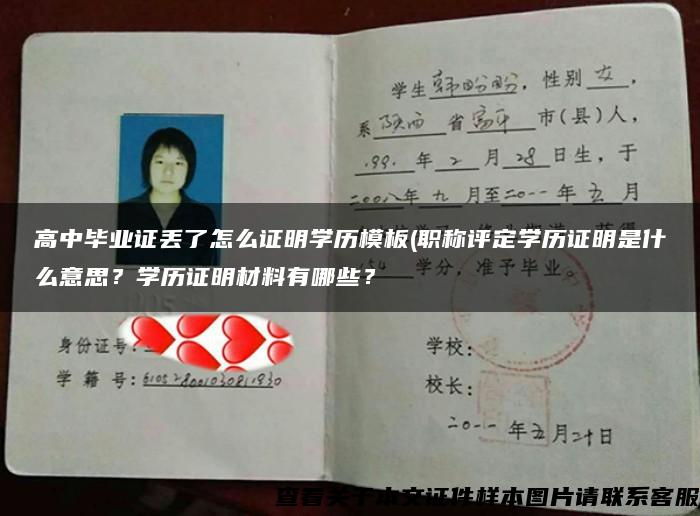 学生韩盼盼，性别女，
系陕西省富平市(县)人，
年2月28日生，于
二00八年九月至二0一一年五月
高中毕业证丢了怎么证明学历模板(职称评定学历证明是什
么意思？学历证明材料有哪些？
学分，准予毕业。
身份证号:
学籍号:
学校:
校长:
二0一一年五月二十日
查看关于本文证件样本图片请联系客服